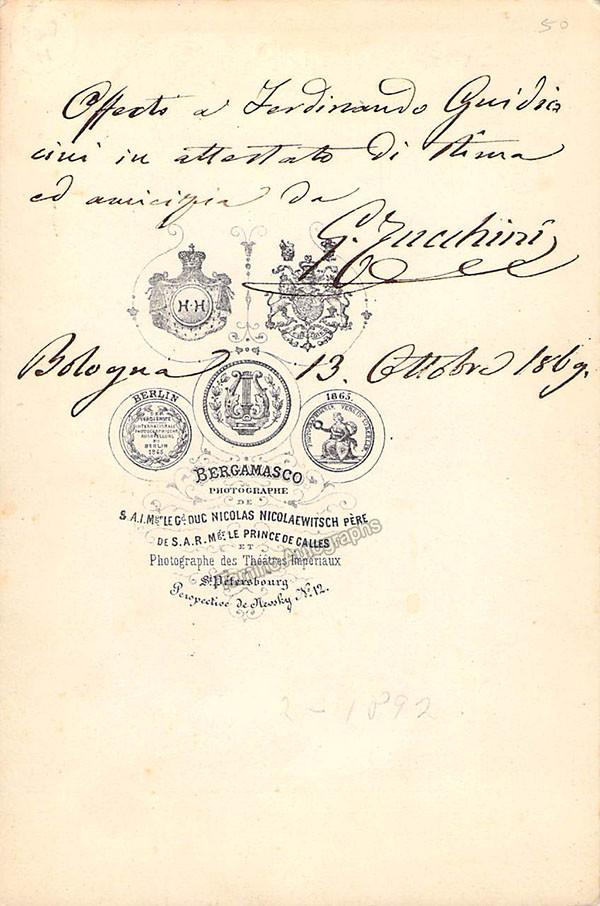 50
Offerto a Ferdinando Guidic
cini in attestato di stima
ed amicizia da
G. Zucchini
H·H
Bologna 13. Ottobre 1869.
BERLIN
1865.
BERLIN
1865
BERGAMASCO
PHOTOGRAPHE
DE
S.A.I.Mgr LE Gd DUC NICOLAS NICOLAEWITSCH PÈRE
DE S.A.R. Mgr LE PRINCE DE GALLES
ET
Photographe des Théâtres Impériaux
St Pétersbourg
Perspective de Newsky No 12.
2-1892